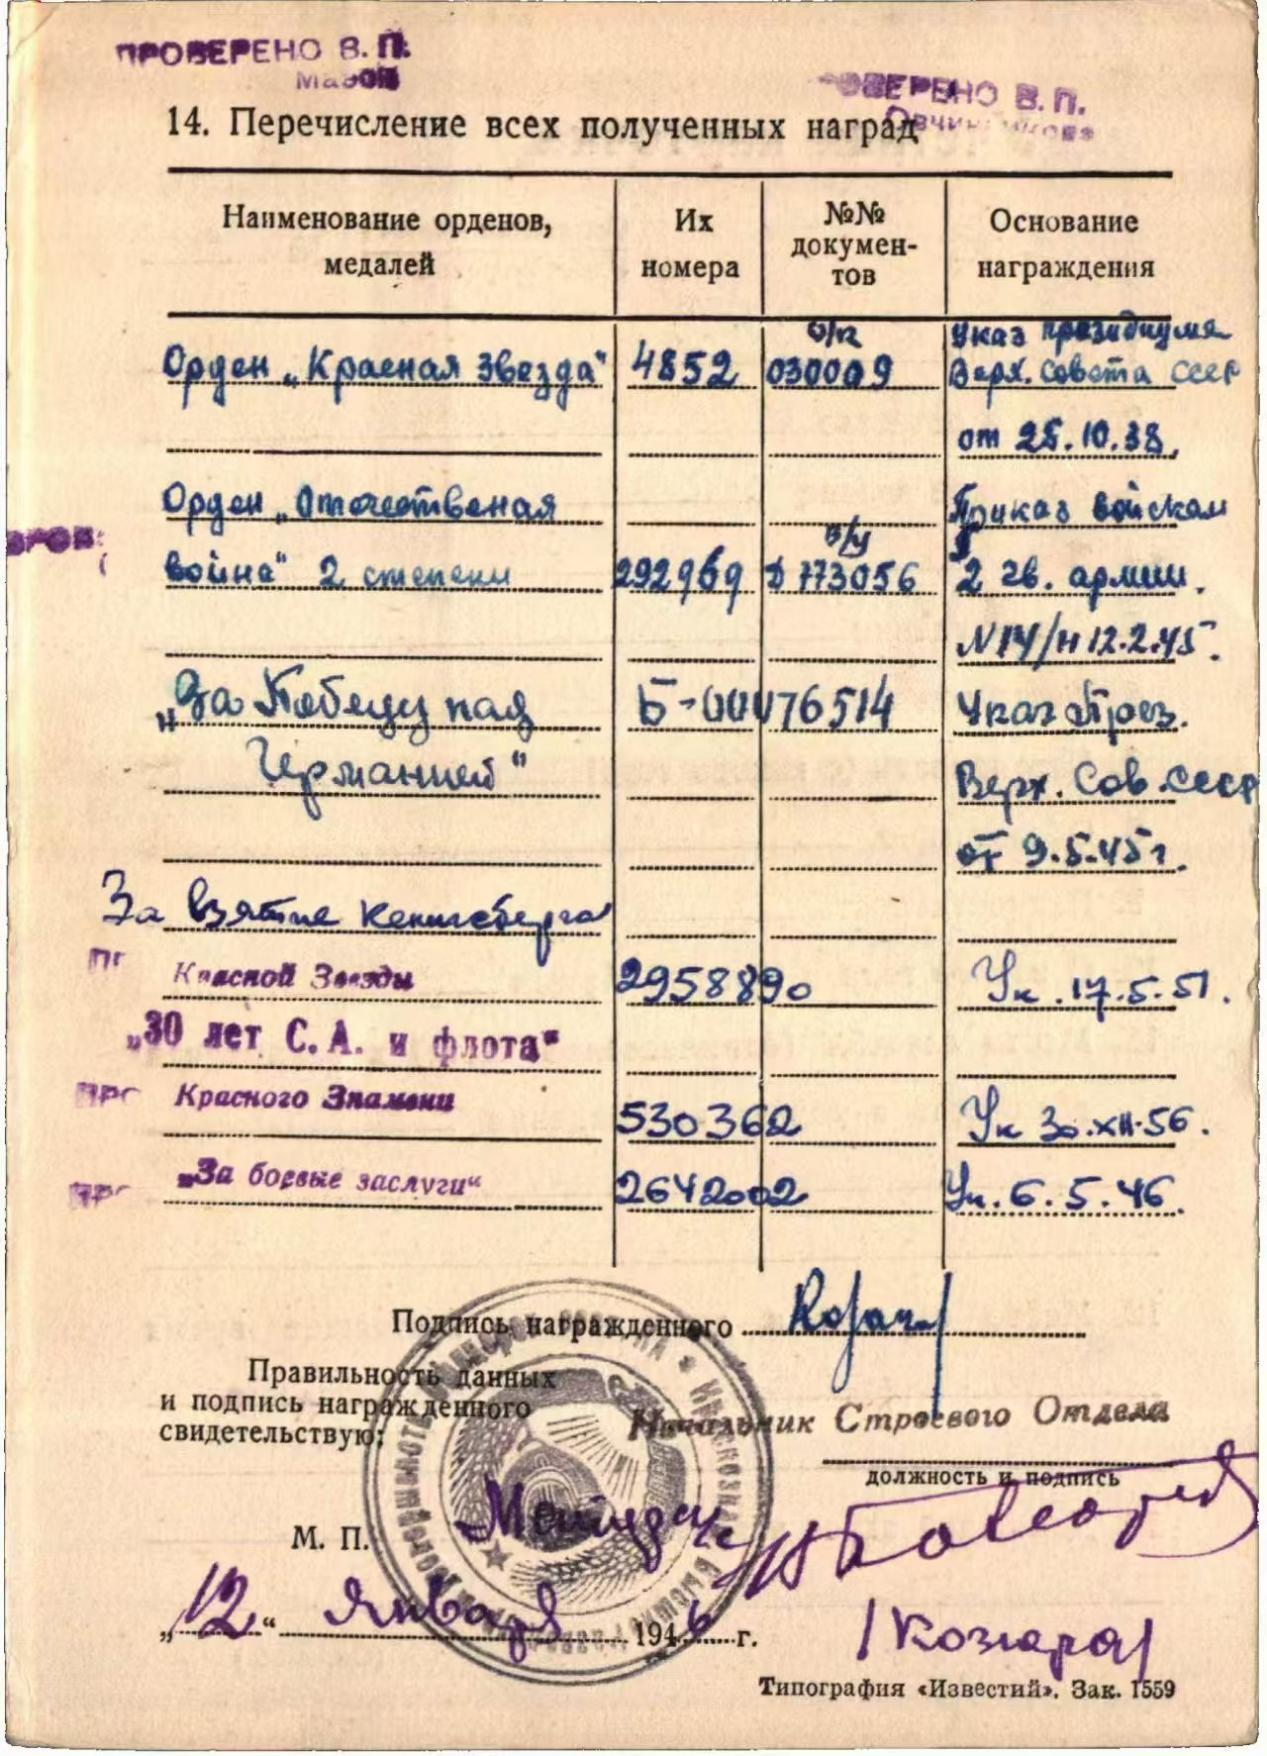 ПРОВЕРЕНО В. П.
ОВЕРЕНО В. П.
14. Перечисление всех полученных наград
Наименование орденов, медалей
Их номера
№№ докумен-тов
Основание награждения
о/к Указ президиума
Орден „Красная звезда“ 4852 030009 Верх. Совета СССР
от 25.10.38.
Орден „Отечественая Приказ войскам
в/у
война“ 2 степени 292969 Д 773056 2 гв. армии.
N14/н 12.2.45.
„За Победу над Б-0076514 Указ През.
Германией“ Верх. Сов. СССР
от 9.5.45г.
За взятие Кенигсберга
Красной Звезды 2958890 Ук. 17.5.51.
„30 лет С. А. и флота“
Красного Знамени
530362 Ук 30.XII.56.
„За боевые заслуги“ 2642002 Ук. 6.5.46.
Подпись награжденного
Правильность данных
и подпись награжденного
свидетельствую:
Начальник Строевого Отдела
должность и подпись
М. П.
„12“ Января 1946 г.
Типография «Известий». Зак. 1559